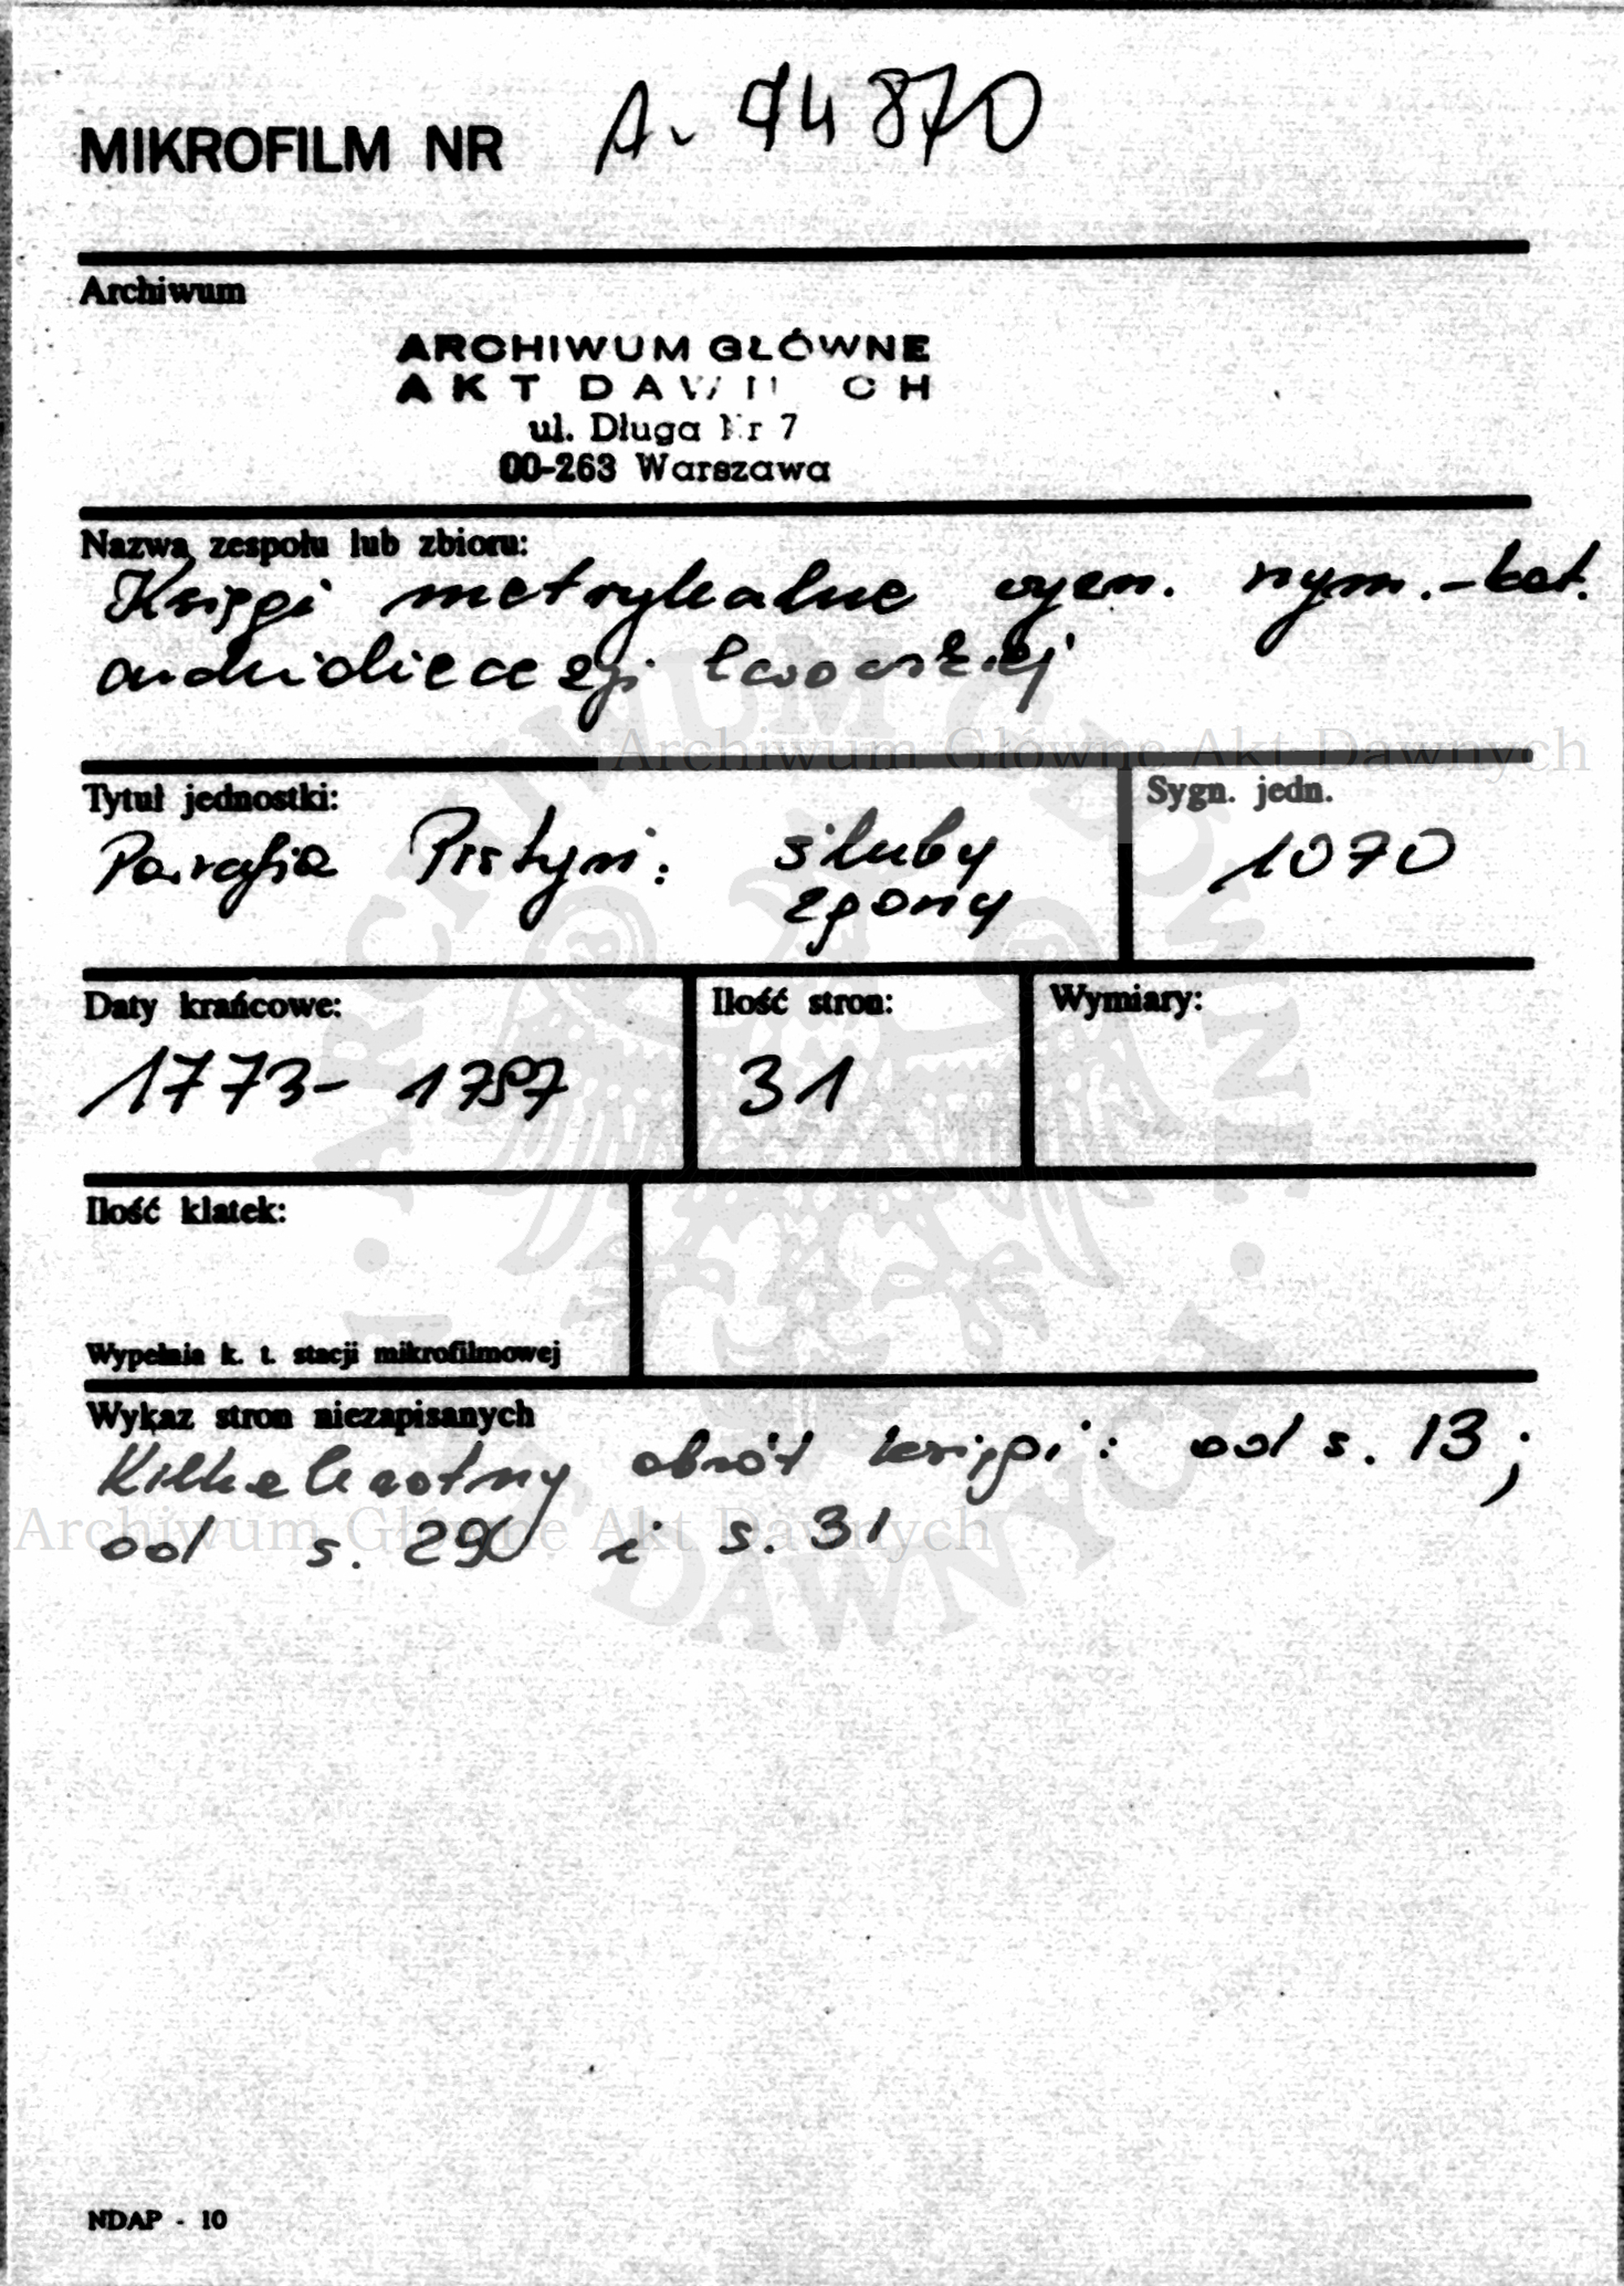 MIKROFILM NR A. 44870
Archiwum
ARCHIWUM GŁÓWNE
AKT DAWN CH
ul. Długa Nr 7
00-263 Warszawa
Nazwa zespołu lub zbioru:
Księgi metrykalne wyzn. rzym.-kat.
archidiecezji lwowskiej
Archiwum Główne Akt Dawnych
Tytuł jednostki:
Sygn. jedn.
Parafia Pistyń: śluby
zgony
1070
Daty krańcowe:
Ilość stron:
Wymiary:
1773- 1787
31
Ilość klatek:
Wypełnia k. t. stacji mikrofilmowej
Wykaz stron niezapisanych
Kilkakrotny obrót księgi: od s. 13;
od s. 29 i s. 31
Archiwum Główne Akt Dawnych
ARCHIWUM GŁÓWNE AKT DAWNYCH
NDAP - 10